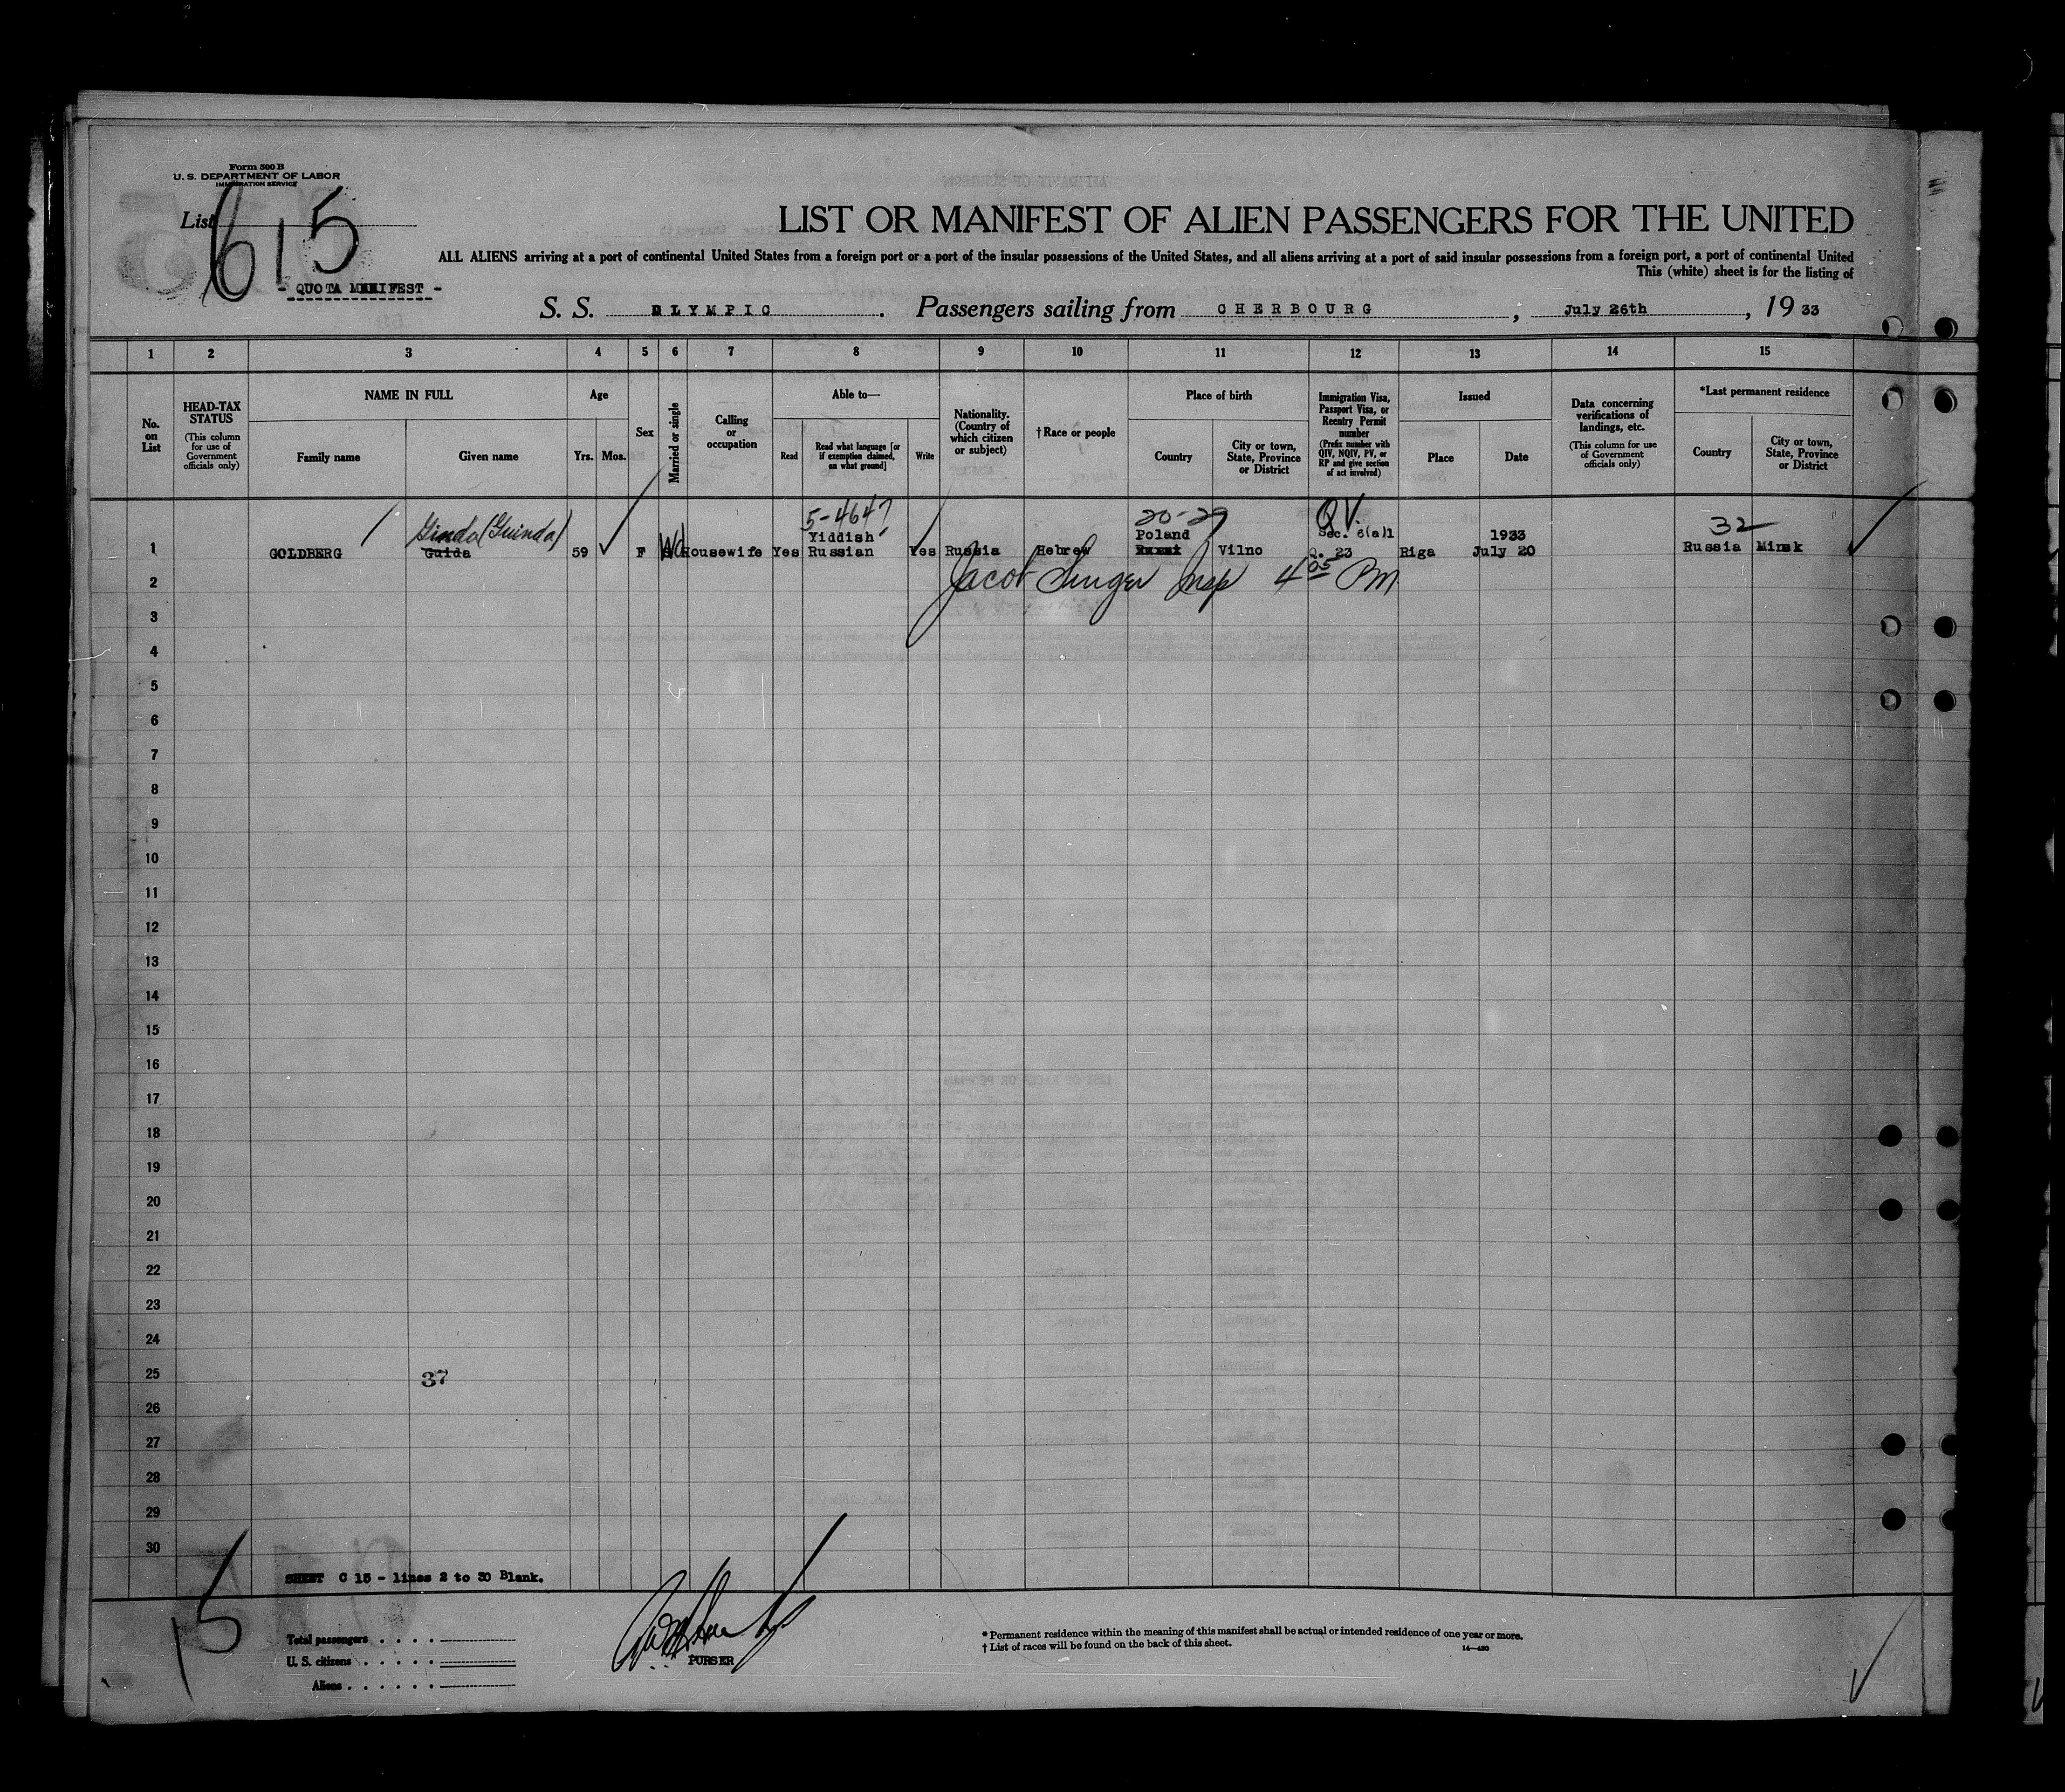 Form 500 B
U. S. DEPARTMENT OF LABOR
IMMIGRATION SERVICE
List 615
- QUOTA MANIFEST -
LIST OR MANIFEST OF ALIEN PASSENGERS FOR THE UNITED
ALL ALIENS arriving at a port of continental United States from a foreign port or a port of the insular possessions of the United States, and all aliens arriving at a port of said insular possessions from a foreign port, a port of continental United
This (white) sheet is for the listing of
S. S. OLYMPIC. Passengers sailing from CHERBOURG, July 26th, 19 33
1 2 3 4 5 6 7 8 9 10 11 12 13 14 15
No. on List
HEAD-TAX STATUS
(This column for use of Government officials only)
NAME IN FULL
Family name Given name
Age
Yrs. Mos.
Sex
Married or single
Calling or occupation
Able to—
Read Read what language [or if exemption claimed, on what ground] Write
Nationality. (Country of which citizen or subject)
†Race or people
Place of birth
Country City or town, State, Province or District
Immigration Visa, Passport Visa, or Reentry Permit number
(Prefix number with QIV, NQIV, PV, or RP and give section of act involved)
Issued
Place Date
Data concerning verifications of landings, etc.
(This column for use of Government officials only)
*Last permanent residence
Country City or town, State, Province or District
5-4647 20-29 QV 32
Ginda (Guinda) Yiddish Poland Sec. 6(a)1 1933
1 GOLDBERG Guida 59 F Wd Housewife Yes Russian Yes Russia Hebrew Vilno Q. 23 Riga July 20 Russia Minsk
2 Jacob Singer Insp 4 05 PM
3
4
5
6
7
8
9
10
11
12
13
14
15
16
17
18
19
20
21
22
23
24
25 37
26
27
28
29
30
SHEET C 15 - lines 2 to 30 Blank.
15
Total passengers
U. S. citizens
Aliens
PURSER
* Permanent residence within the meaning of this manifest shall be actual or intended residence of one year or more.
† List of races will be found on the back of this sheet.
14—430